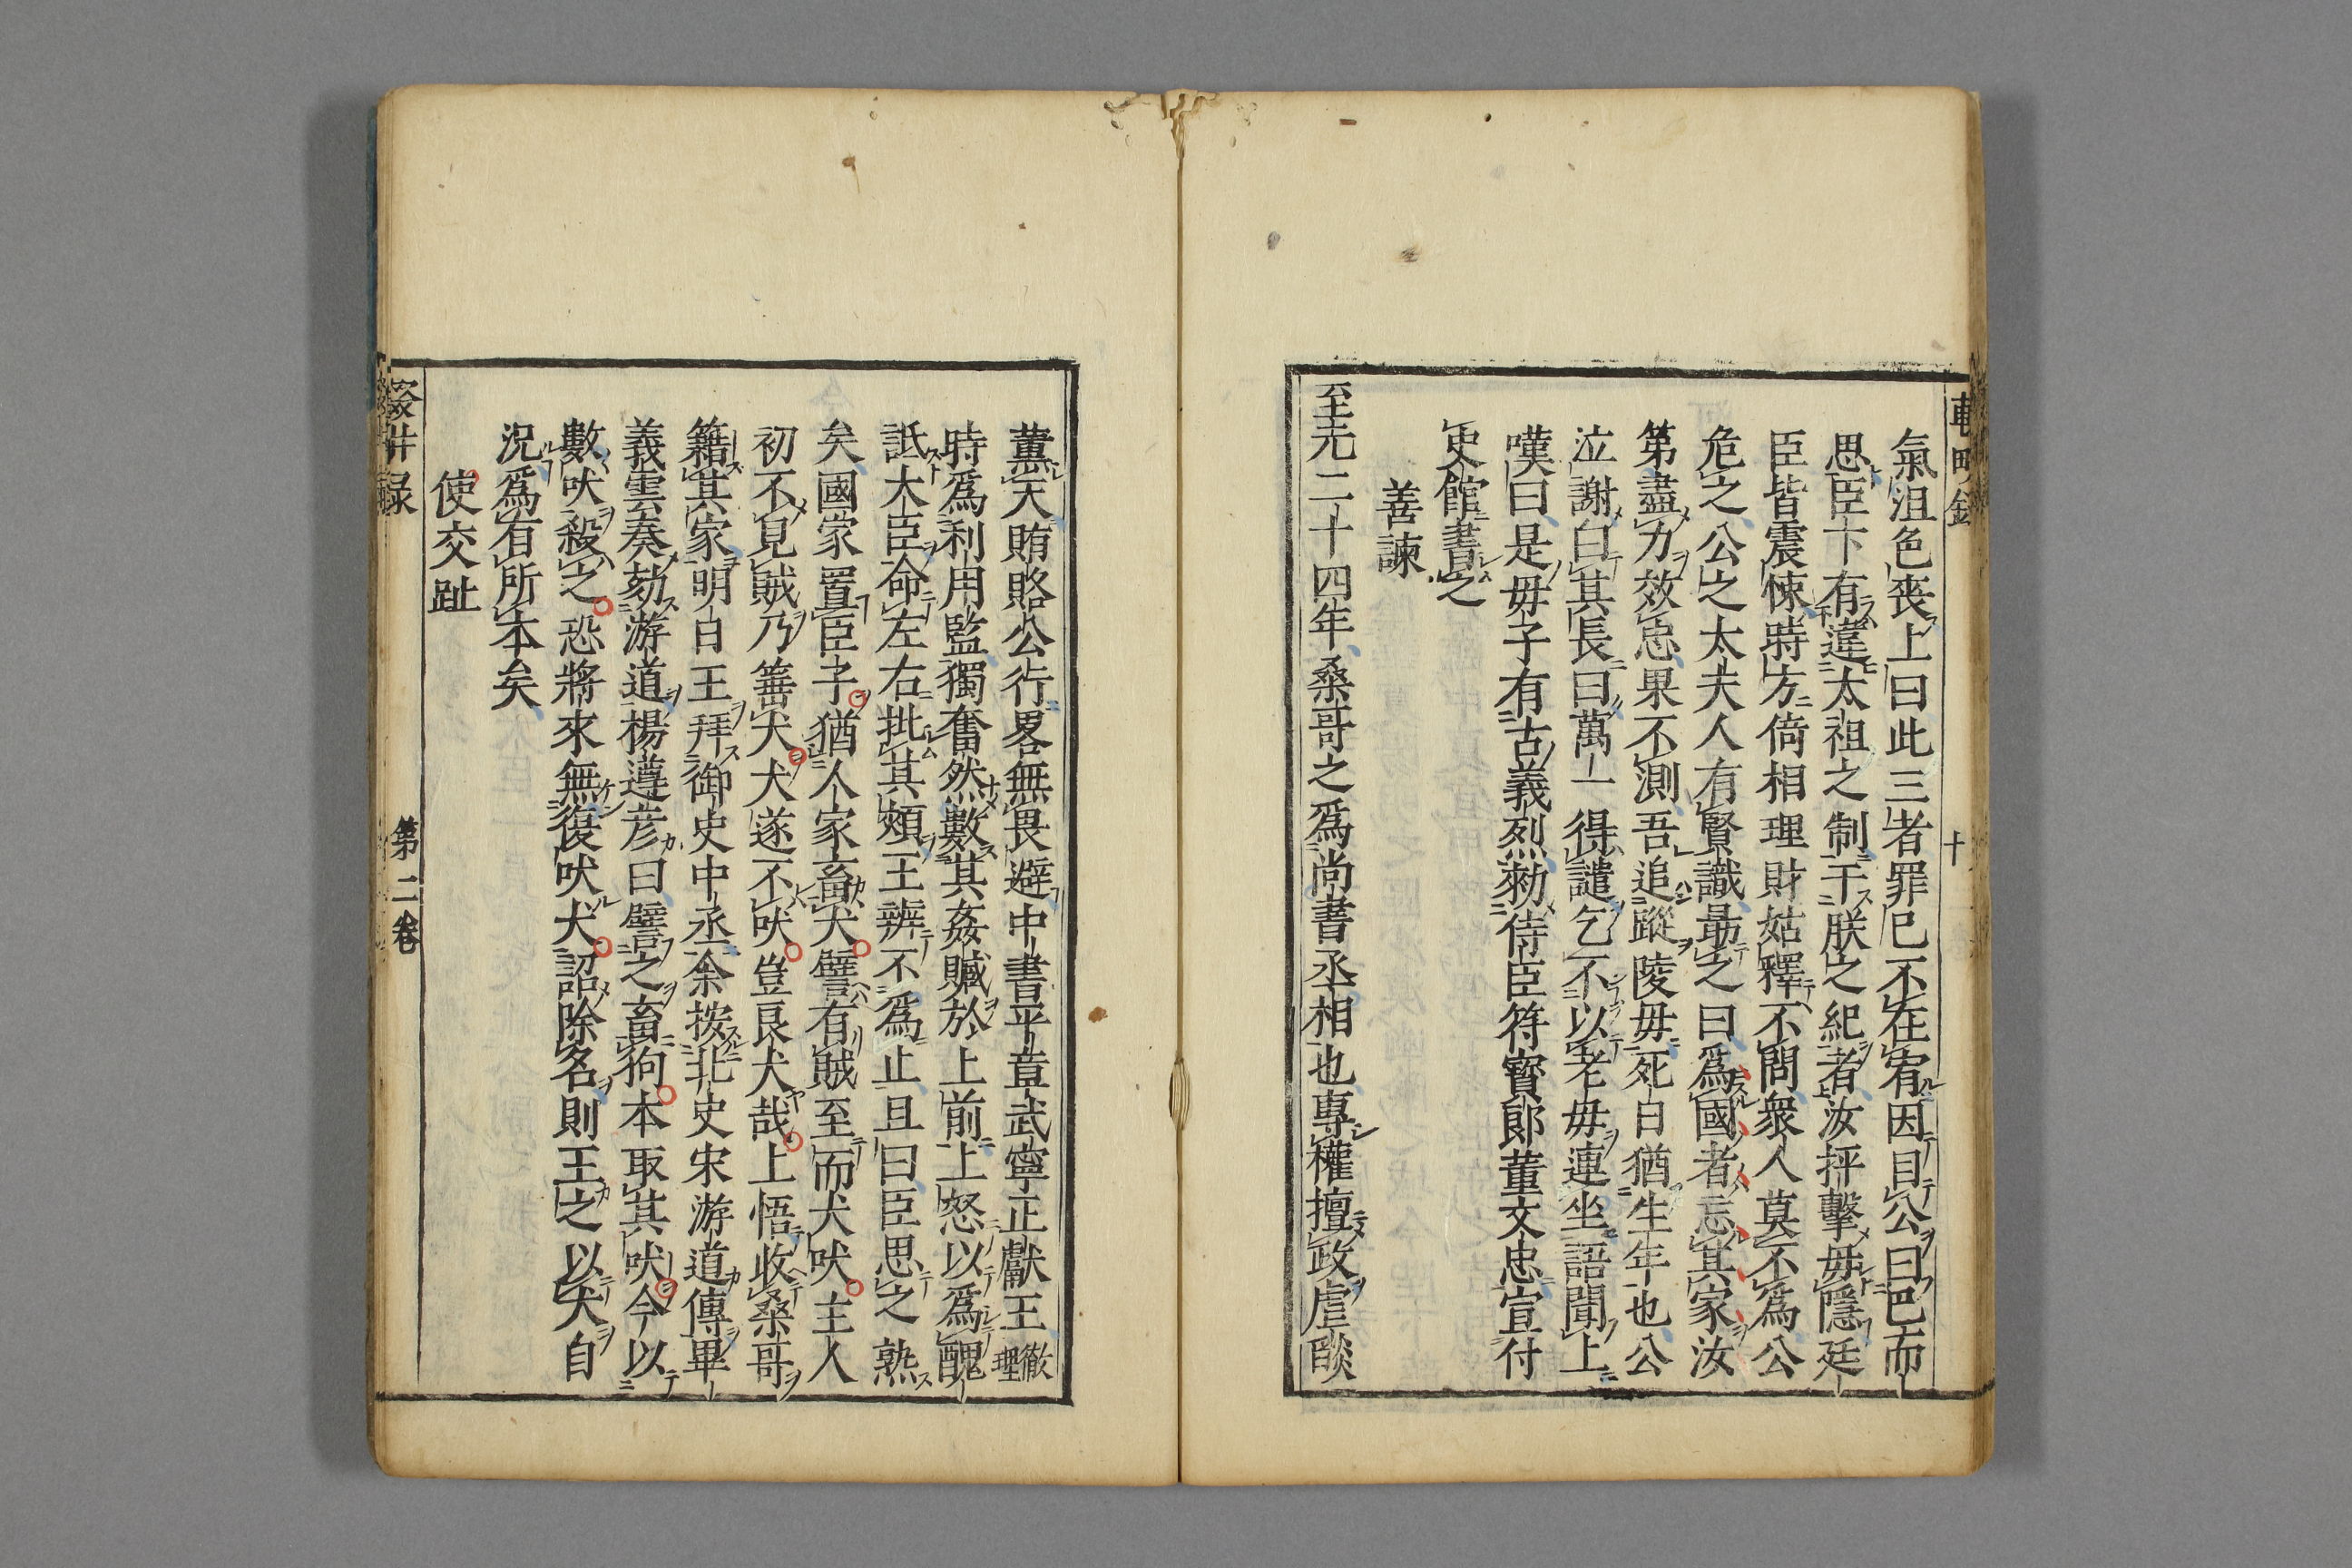 氣沮色喪上曰此三者罪巳不在宥因目公曰巴而
思臣卞有違太祖之制干朕之紀者汝抨擊毋隱廷
臣皆震悚時方倚相理財姑釋不問衆人莫不爲公
危之公之太夫人有賢識最之曰爲國者忘其家汝
第盡力效忠果不測吾追蹤陵毋死日猶生年也公
泣謝白其長曰萬一得譴乞不以老毋連坐語聞上
嘆曰是毋子有古義烈勑侍臣符寳郞董文忠宣付
史館書之
善諫
至元二十四年桑哥之爲尚書丞相也專權擅政虐燄
薰天賄賂公行畧無畏避中書平章武寧正獻王徹理
時爲利用監獨奮然數其姦贓於上前上怒以爲醜
詆大臣命左右批其頰王辨不爲止且曰臣思之熟
矣國家置臣子猶人家畜犬譬有賊至而犬吠主人
初不見賊乃箠犬犬遂不吠豈良犬哉上悟收桑哥
籍其家明日王拜御史中丞余按北史宋游道傳畢
義雲奏劾游道楊遵彥曰譬之畜狗本取其吠今以
數吠殺之恐將來無復吠犬詔除名則王之以犬自
況爲有所本矣
使交趾
第二卷